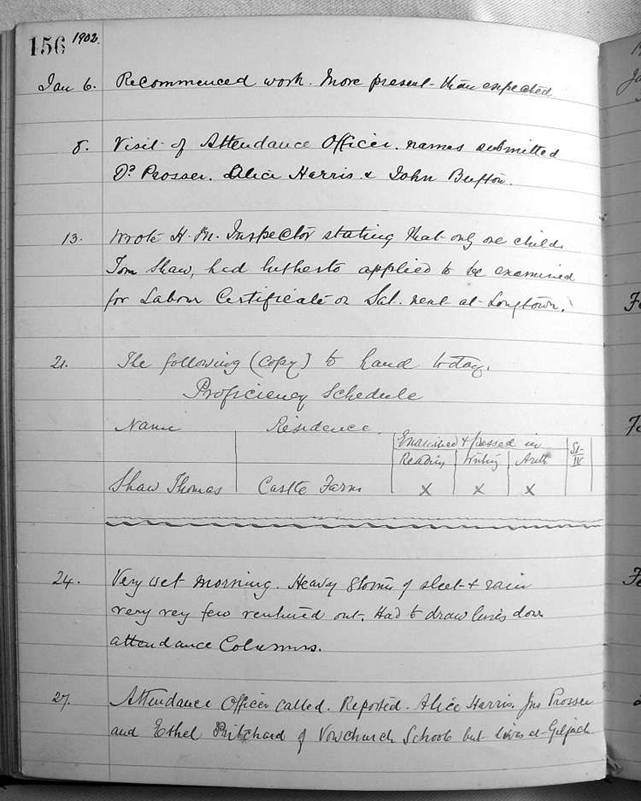 156 1902.
Jan 6. Recommenced work. More present than expected
8. Visit of Attendance Officer. names submitted
Prosser. Alice Harris & John Bufton.
13. Wrote H. M. Inspector stating that only one child
Tom Shaw, had hitherto applied to be examined
for Labour Certificate on Sat. next at Longtown.
21. The following (copy) to hand today.
Proficiency Schedule
Name Residence
Examined & passed in
Reading Writing Arith St. IV
Shaw Thomas Castle Farm x x x
24. Very wet morning. Heavy storms of sleet & rain
very very few ventured out. Had to draw lines down
attendance Columns.
27. Attendance Officer called. Reported. Alice Harris. Prosser
and Ethel Pritchard of Vowchurch School but lives at